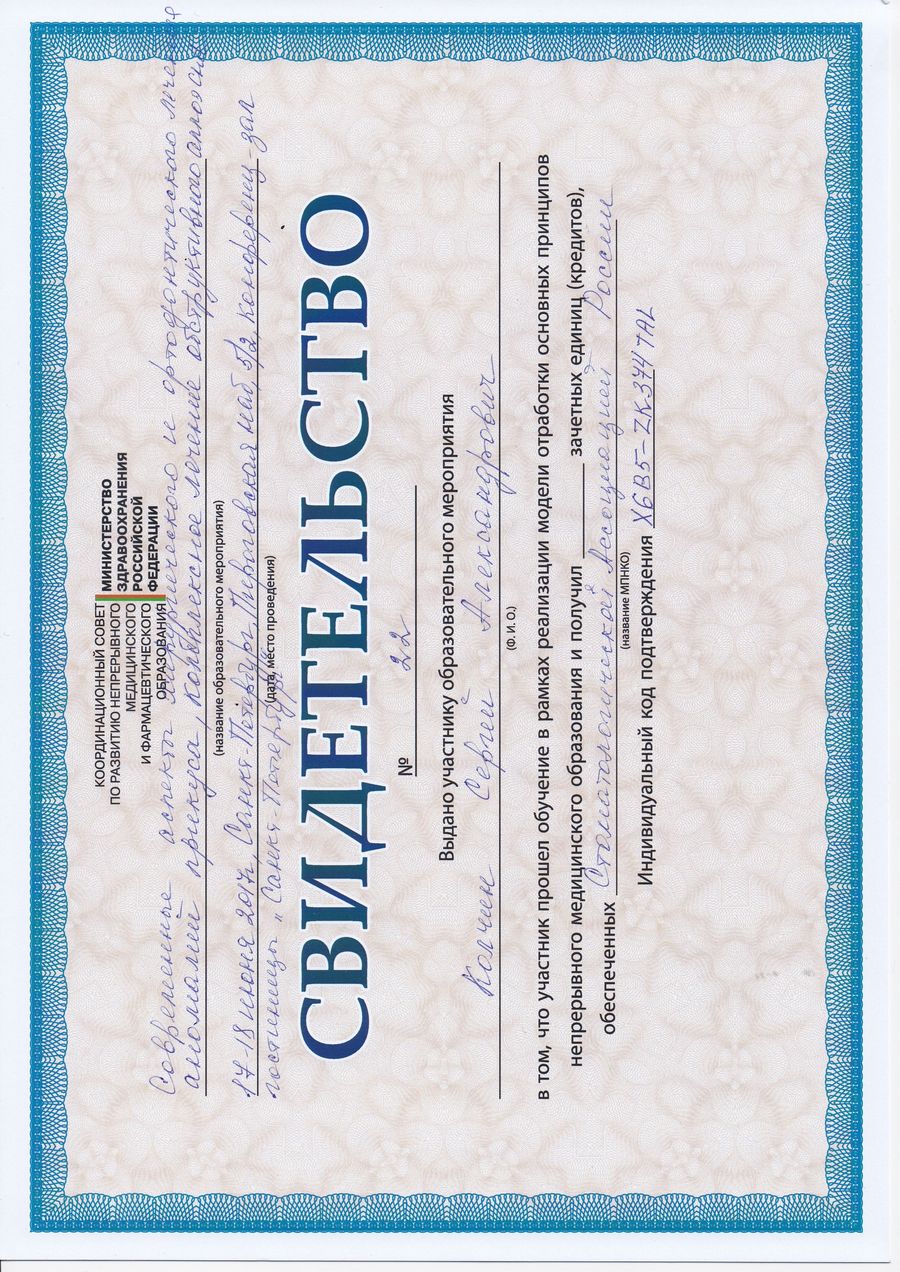 КООРДИНАЦИОННЫЙ СОВЕТ
ПО РАЗВИТИЮ НЕПРЕРЫВНОГО
МЕДИЦИНСКОГО
И ФАРМАЦЕВТИЧЕСКОГО
ОБРАЗОВАНИЯ
МИНИСТЕРСТВО
ЗДРАВООХРАНЕНИЯ
РОССИЙСКОЙ
ФЕДЕРАЦИИ
Современные аспекты хирургического и ортодонтического лечения
аномалий прикуса, комплексное лечение обструктивного апноэ сна
(название образовательного мероприятия)
17-18 июня 2017г, Санкт-Петербург, Пироговская наб, 5/2, конференц-зал
(дата, место проведения)
гостиницы "Санкт-Петербург"
СВИДЕТЕЛЬСТВО
№ 22
Выдано участнику образовательного мероприятия
Колчин Сергей Александрович
(Ф. И. О.)
в том, что участник прошел обучение в рамках реализации модели отработки основных принципов
непрерывного медицинского образования и получил зачетных единиц (кредитов),
обеспеченных Стоматологической Ассоциацией России
(название МПНКО)
Индивидуальный код подтверждения X6B5-ZK374TAL